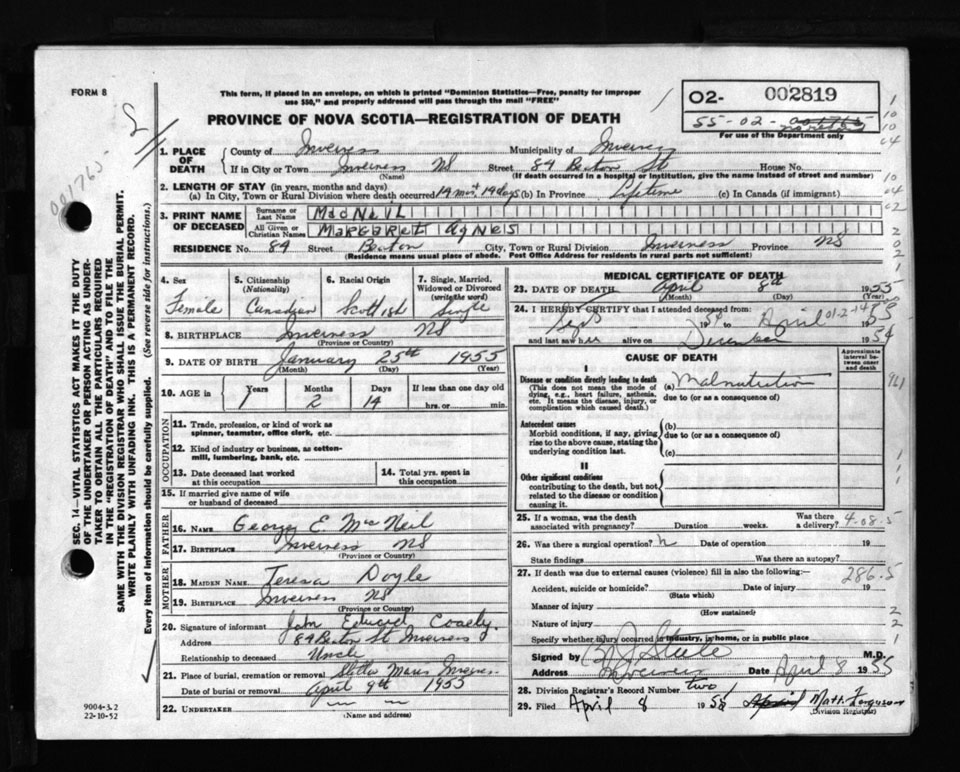 FORM 8
This form, if placed in an envelope, on which is printed "Dominion Statistics—Free, penalty for improper
use $50," and properly addressed will pass through the mail "FREE"
PROVINCE OF NOVA SCOTIA—REGISTRATION OF DEATH
O2- 002819
55-02-
For use of the Department only
001765-
1. PLACE OF DEATH { County of Inverness Municipality of Inverness
If in City or Town Inverness NS Street 84 Beaton St House No.
(Name) (If death occurred in a hospital or institution, give the name instead of street and number)
2. LENGTH OF STAY (in years, months and days)
(a) In City, Town or Rural Division where death occurred 14 mos 14 days (b) In Province Lifetime (c) In Canada (if immigrant)
3. PRINT NAME OF DECEASED { Surname or Last Name MacNeil
All Given or Christian Names Margaret Agnes
RESIDENCE No. 84 Street Beaton City, Town or Rural Division Inverness Province NS
(Residence means usual place of abode. Post Office Address for residents in rural parts not sufficient)
4. Sex Female
5. Citizenship (Nationality) Canadian
6. Racial Origin Scottish
7. Single, Married, Widowed or Divorced (write the word) Single
8. BIRTHPLACE Inverness NS
(Province or Country)
9. DATE OF BIRTH January 25th 1955
(Month) (Day) (Year)
10. AGE in { Years 1 Months 2 Days 14 If less than one day old hrs. or min.
OCCUPATION
11. Trade, profession, or kind of work as spinner, teamster, office clerk, etc.
12. Kind of industry or business, as cotton-mill, lumbering, bank, etc.
13. Date deceased last worked at this occupation
14. Total yrs. spent in this occupation
15. If married give name of wife or husband of deceased
FATHER
16. NAME George E McNeil
17. BIRTHPLACE Inverness NS
(Province or Country)
MOTHER
18. MAIDEN NAME Teresa Doyle
19. BIRTHPLACE Inverness NS
(Province or Country)
20. Signature of informant John Edward Coady
Address 84 Beaton St Inverness
Relationship to deceased Uncle
21. Place of burial, cremation or removal Stella Maris Inverness
Date of burial or removal April 9th 1955
22. UNDERTAKER
(Name and address)
MEDICAL CERTIFICATE OF DEATH
23. DATE OF DEATH April 8th 1955
(Month) (Day) (Year)
24. I HEREBY CERTIFY that I attended deceased from:
Sept 1954 to April 1955
01-2-14
and last saw her alive on December 1954
CAUSE OF DEATH
Approximate interval between onset and death
I
Disease or condition directly leading to death (a) Malnutrition
(This does not mean the mode of dying, e.g., heart failure, asthenia, etc. It means the disease, injury, or complication which caused death.)
due to (or as a consequence of)
961
Antecedent causes (b)
Morbid conditions, if any, giving rise to the above cause, stating the underlying condition last.
due to (or as a consequence of)
(c)
II
Other significant conditions
contributing to the death, but not related to the disease or condition causing it.
25. If a woman, was the death associated with pregnancy? Duration weeks. Was there a delivery? 4-08-5
26. Was there a surgical operation? N Date of operation 19
State findings Was there an autopsy?
27. If death was due to external causes (violence) fill in also the following:— 286.5
Accident, suicide or homicide? Date of injury 19
(State which)
Manner of injury
(How sustained)
Nature of injury
Specify whether injury occurred in industry, in home, or in public place
Signed by Steele M.D.
Address Inverness Date April 8 1955
28. Division Registrar's Record Number two
29. Filed April 8 195 Matt. Ferguson
(Division Registrar)
SEC. 14—VITAL STATISTICS ACT MAKES IT THE DUTY
OF THE UNDERTAKER OR PERSON ACTING AS UNDER-
TAKER TO OBTAIN ALL THE PARTICULARS REQUIRED
IN THE "REGISTRATION OF DEATH" AND TO FILE THE
SAME WITH THE DIVISION REGISTRAR WHO SHALL ISSUE THE BURIAL PERMIT.
WRITE PLAINLY WITH UNFADING INK. THIS IS A PERMANENT RECORD.
Every item of information should be carefully supplied. (See reverse side for instructions.)
9004-3.2
22-10-52